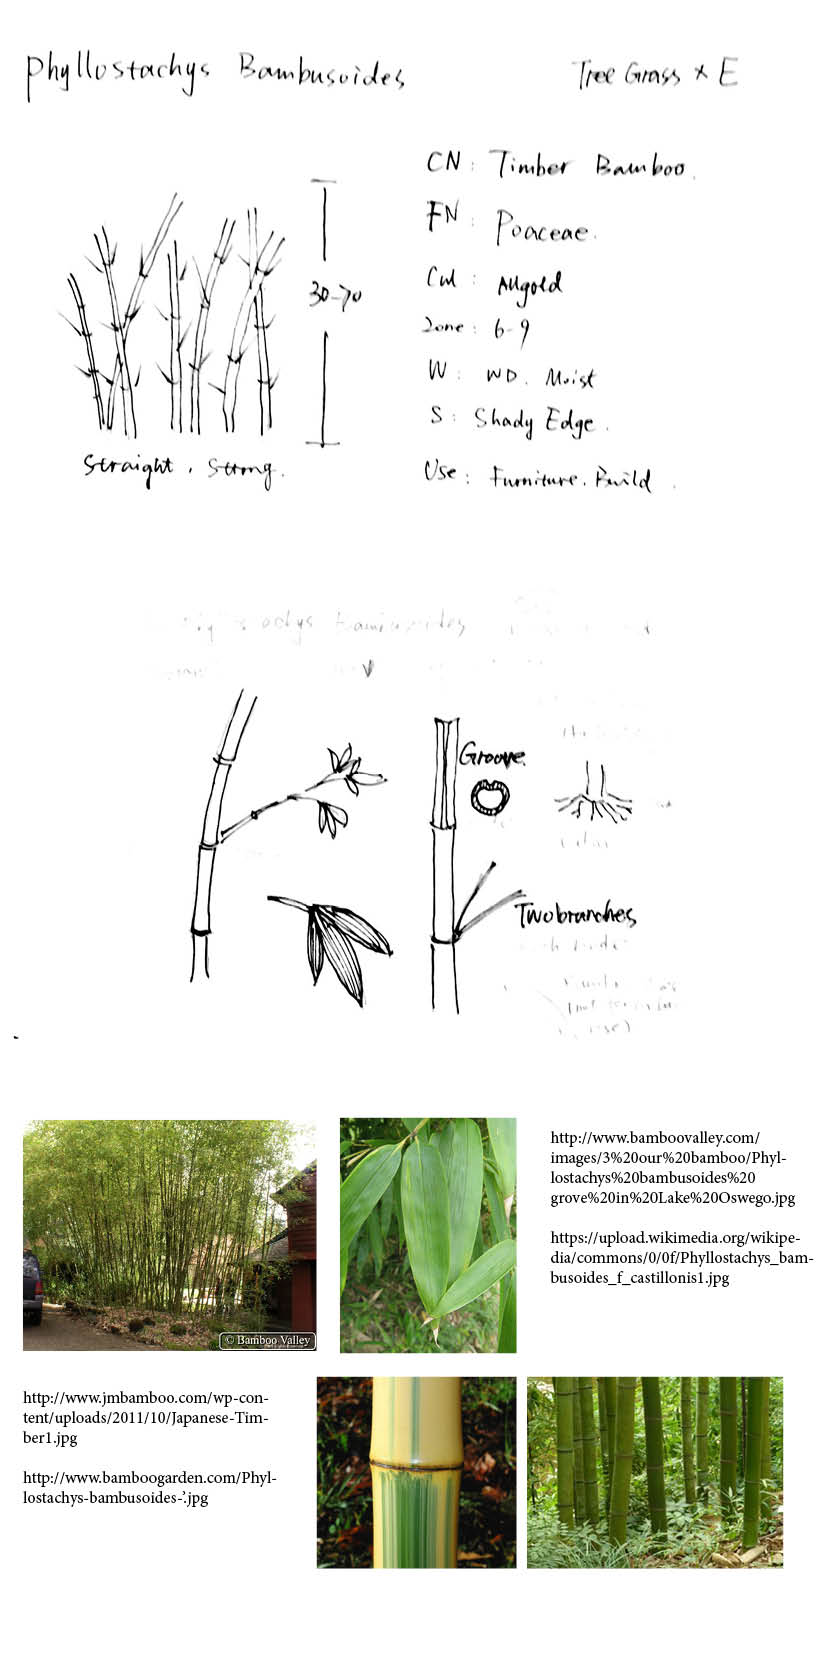 Phyllostachys Bambusoides
Tree Grass x E
CN : Timber Bamboo.
FN : Poaceae.
Cul : Allgold
Zone : 6-9
W : WD. Moist
S : Shady Edge.
Use : Furniture. Build.
30-70
Straight, Strong.
Groove.
Two branches
http://www.bamboovalley.com/
images/3%20our%20bamboo/Phyl-
lostachys%20bambusoides%20
grove%20in%20Lake%20Oswego.jpg
https://upload.wikimedia.org/wikipe-
dia/commons/0/0f/Phyllostachys_bam-
busoides_f_castillonis1.jpg
© Bamboo Valley
http://www.jmbamboo.com/wp-con-
tent/uploads/2011/10/Japanese-Tim-
ber1.jpg
http://www.bamboogarden.com/Phyl-
lostachys-bambusoides-'.jpg